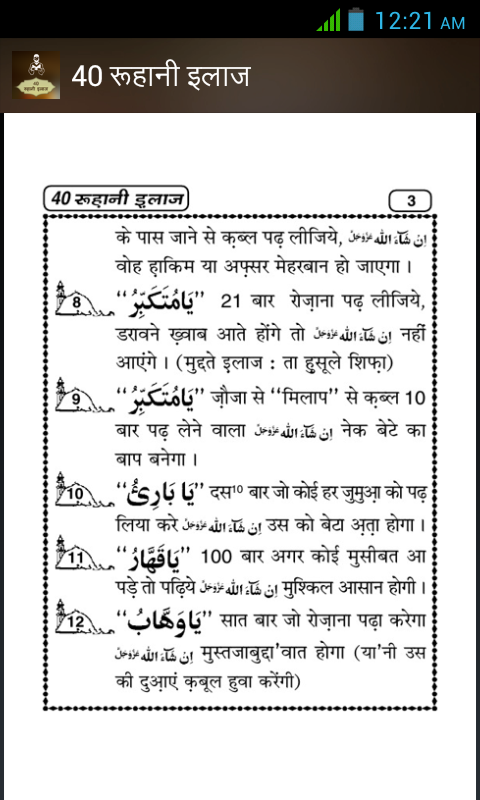 12:21 AM
40 रूहानी इलाज
40 रूहानी इलाज 3
के पास जाने से क़ब्ल पढ़ लीजिये, اِنْ شَآءَ اللّٰه عَزَّوَجَلَّ
वोह ह़ाकिम या अफ़्सर मेहरबान हो जाएगा ।
8 “یَا مُتَکَبِّرُ” 21 बार रोज़ाना पढ़ लीजिये,
डरावने ख़्वाब आते होंगे तो اِنْ شَآءَ اللّٰه عَزَّوَجَلَّ नहीं
आएंगे । (मुद्दते इलाज : ता हुसूले शिफ़ा)
9 “یَا مُتَکَبِّرُ” ज़ौजा से “मिलाप” से क़ब्ल 10
बार पढ़ लेने वाला اِنْ شَآءَ اللّٰه عَزَّوَجَلَّ नेक बेटे का
बाप बनेगा ।
10 “یَا بَارِئُ” दस¹⁰ बार जो कोई हर जुमुआ़ को पढ़
लिया करे اِنْ شَآءَ اللّٰه عَزَّوَجَلَّ उस को बेटा अ़त़ा होगा ।
11 “یَا قَهَّارُ” 100 बार अगर कोई मुसीबत आ
पड़े तो पढ़िये اِنْ شَآءَ اللّٰه عَزَّوَجَلَّ मुश्किल आसान होगी ।
12 “یَا وَهَّابُ” सात बार जो रोज़ाना पढ़ा करेगा
اِنْ شَآءَ اللّٰه عَزَّوَجَلَّ मुस्तजाबुद्दा’वात होगा (या’नी उस
की दुआ़एं क़बूल हुवा करेंगी)